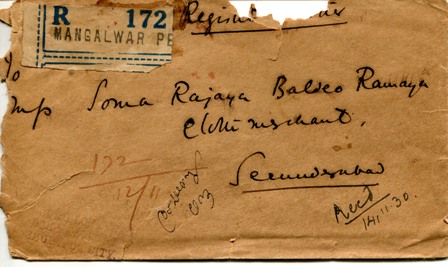 R 172
MANGALWAR PE
Regist
To
M/s Soma Rajaya Baldeo Ramaya
Cloth merchant,
Secunderabad
172
12/11
Recd
14.11.30.